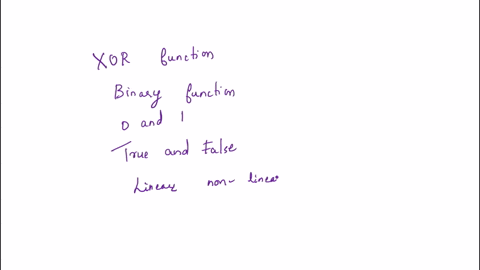 XOR function
Binary function
0 and 1
True and False
Linear non-linear